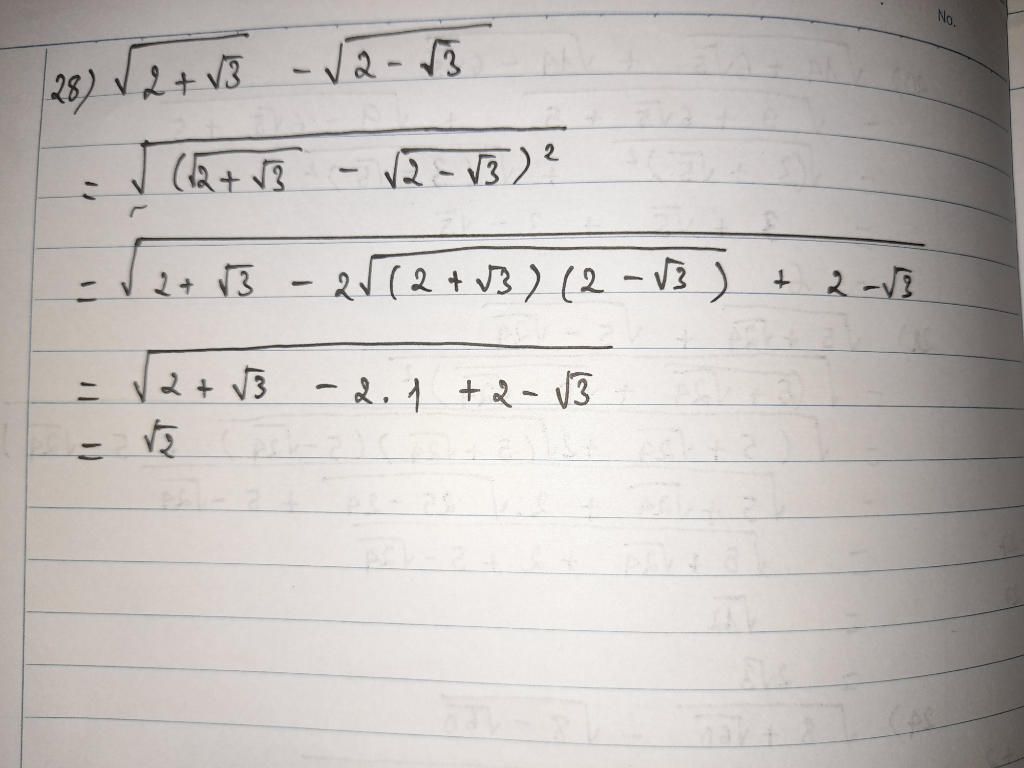 No.
28) √(2 + √3) - √(2 - √3)
= √((√(2 + √3) - √(2 - √3))²)
= √(2 + √3 - 2√((2 + √3)(2 - √3)) + 2 - √3)
= √(2 + √3 - 2.1 + 2 - √3)
= √2